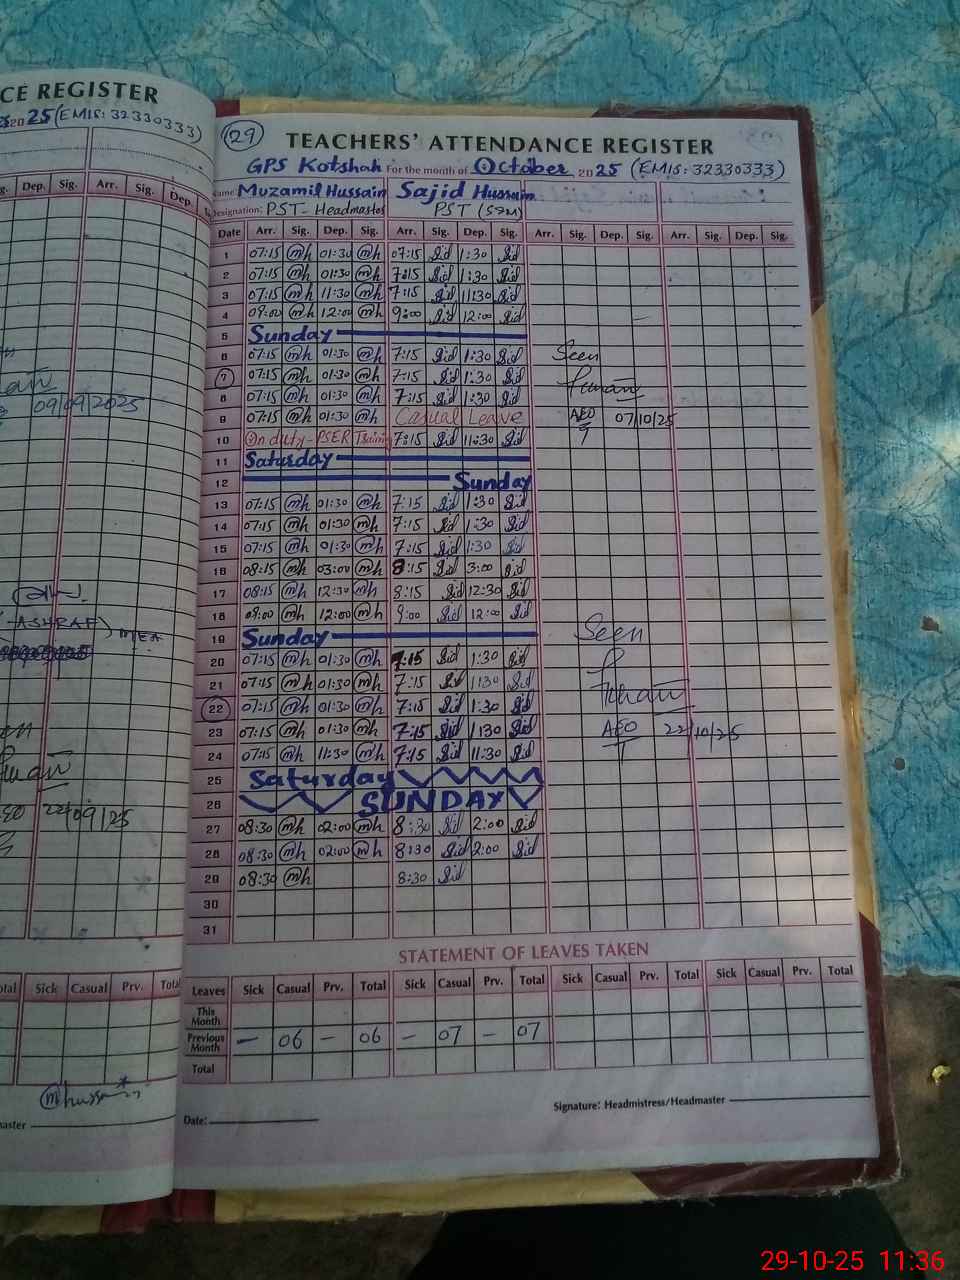 CE REGISTER
2025 (EMIS: 32330333)
g. Dep. Sig. Arr. Sig. Dep.
09/09/2025
ASHRAF)
22/09/25
Sick Casual Prv. Total
29
TEACHERS' ATTENDANCE REGISTER
GPS Kotshah For the month of October 2025 (EMIS: 32330333)
Name: Muzamil Hussain Sajid Hussain
Designation: PST-Headmaster PST
Date Arr. Sig. Dep. Sig. Arr. Sig. Dep. Sig. Arr. Sig. Dep. Sig. Arr. Sig. Dep. Sig.
1 07:15 mh 01:30 mh 07:15 Sid 1:30 Sid
2 07:15 mh 01:30 mh 7:15 Sid 1:30 Sid
3 07:15 mh 11:30 mh 7:15 Sid 11:30 Sid
4 09:00 mh 12:00 mh 9:00 Sid 12:00 Sid
5 Sunday
6 07:15 mh 01:30 mh 7:15 Sid 1:30 Sid Seen
7 07:15 mh 01:30 mh 7:15 Sid 1:30 Sid
8 07:15 mh 01:30 mh 7:15 Sid 1:30 Sid
9 07:15 mh 01:30 mh Casual Leave AEO 07/10/25
10 On duty-PSER Training 7:15 Sid 11:30 Sid
11 Saturday
12 Sunday
13 07:15 mh 01:30 mh 7:15 Sid 1:30 Sid
14 07:15 mh 01:30 mh 7:15 Sid 1:30 Sid
15 07:15 mh 01:30 mh 7:15 Sid 1:30 Sid
16 08:15 mh 03:00 mh 8:15 Sid 3:00 Sid
17 08:15 mh 12:30 mh 8:15 Sid 12:30 Sid
18 09:00 mh 12:00 mh 9:00 Sid 12:00 Sid
19 Sunday Seen
20 07:15 mh 01:30 mh 7:15 Sid 1:30 Sid
21 07:15 mh 01:30 mh 7:15 Sid 1:30 Sid
22 07:15 mh 01:30 mh 7:15 Sid 1:30 Sid
23 07:15 mh 01:30 mh 7:15 Sid 1:30 Sid AEO 22/10/25
24 07:15 mh 11:30 mh 7:15 Sid 11:30 Sid
25 Saturday
26 SUNDAY
27 08:30 mh 02:00 mh 8:30 Sid 2:00 Sid
28 08:30 mh 02:00 mh 8:30 Sid 2:00 Sid
29 08:30 mh 8:30 Sid
30
31
STATEMENT OF LEAVES TAKEN
Leaves Sick Casual Prv. Total Sick Casual Prv. Total Sick Casual Prv. Total Sick Casual Prv. Total
This Month
Previous Month — 06 — 06 — 07 — 07
Total
Date:
Signature: Headmistress/Headmaster
29-10-25 11:36